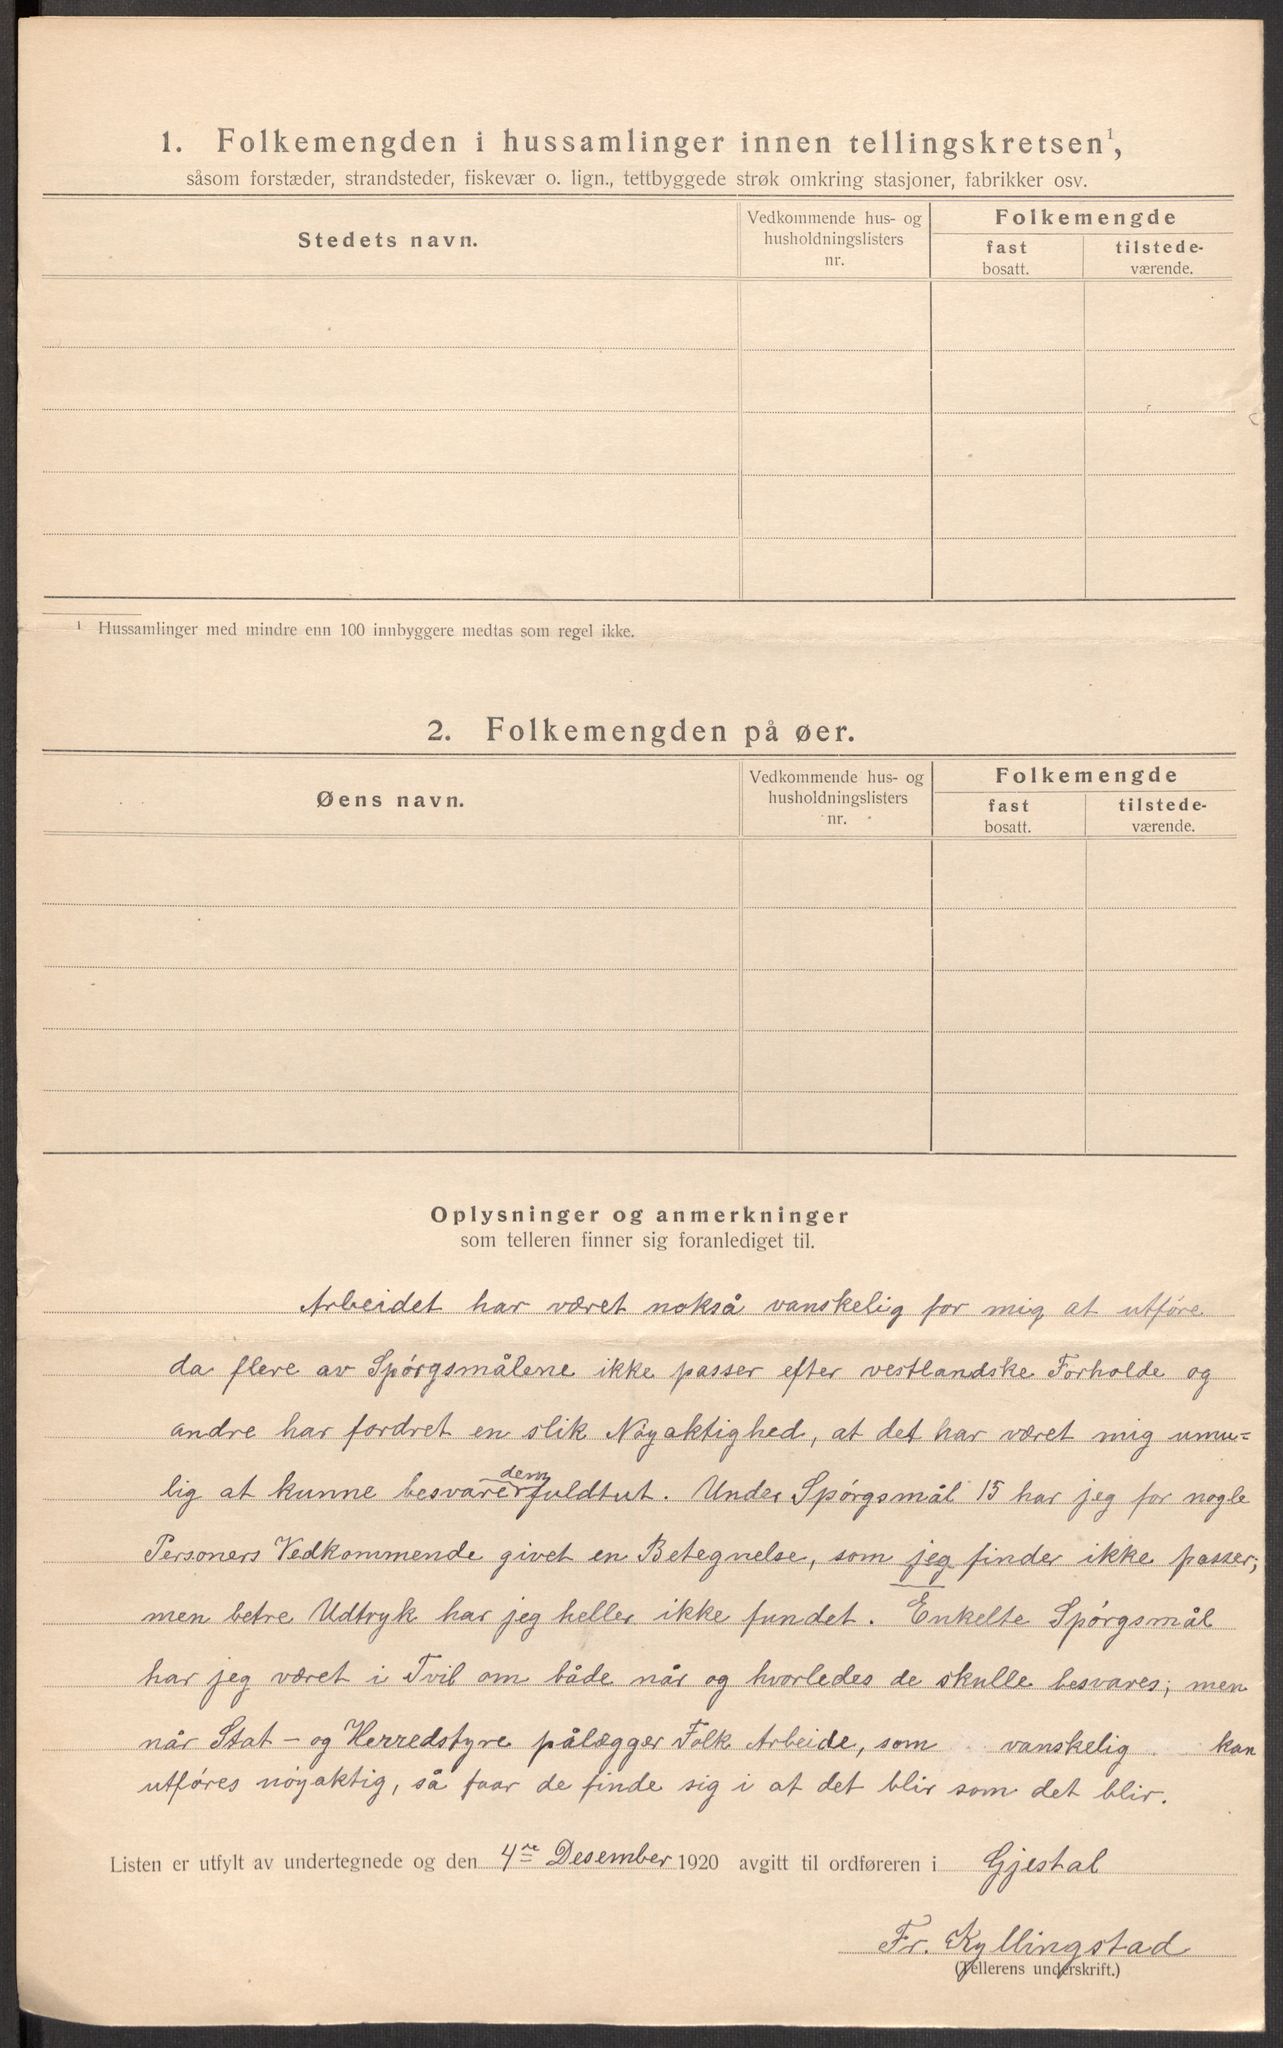 1. Folkemengden i hussamlinger innen tellingskretsen¹,
såsom forstæder, strandsteder, fiskevær o. lign., tettbyggede strøk omkring stasjoner, fabrikker osv.
Stedets navn.
Vedkommende hus- og
husholdningslisters
nr.
Folkemengde
fast
bosatt.
tilstede-
værende.
¹ Hussamlinger med mindre enn 100 innbyggere medtas som regel ikke.
2. Folkemengden på øer.
Øens navn.
Vedkommende hus- og
husholdningslisters
nr.
Folkemengde
fast
bosatt.
tilstede-
værende.
Oplysninger og anmerkninger
som telleren finner sig foranlediget til.
Arbeidet har været nokså vanskelig for mig at utføre
da flere av Spórgsmålene ikke passer efter vestlandske Forholde og
andre har fordret en slik Nóyaktighed, at det har været mig umu=
lig at kunne besvare dem fuldtut. Under Spórgsmål 15 har jeg for nogle
Personers Vedkommende givet en Betegnelse, som jeg finder ikke passer;
men betre Udtryk har jeg heller ikke fundet. Enkelte Spórgsmål
har jeg været i Tvil om både når og hvorledes de skulle besvares; men
når Stat- og Herredstyre pålægger Folk Arbeide, som vanskelig kan
utfóres nóyaktig, så faar de finde sig i at det blir som det blir.
Listen er utfylt av undertegnede og den 4re Desember 1920 avgitt til ordføreren i Gjestal
Fr. Kyllingstad
(Tellerens underskrift.)